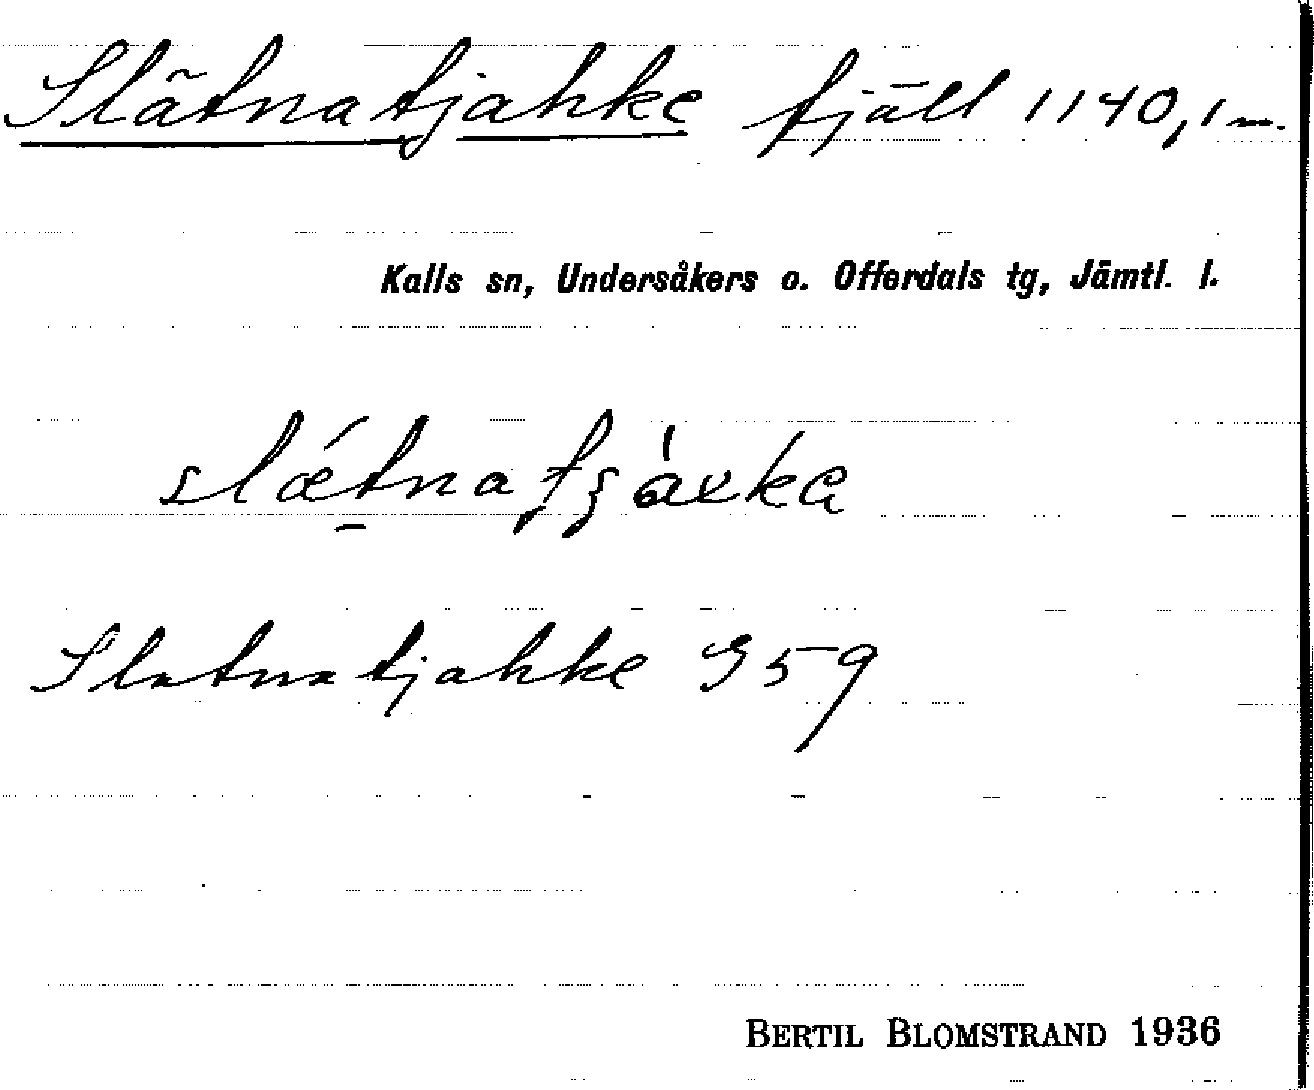 Slãtnatjahke fjäll 1140,1 m.
Kalls sn, Undersåkers o. Offerdals tg, Jämtl. l.
Slatnatjahke G 59
BERTIL BLOMSTRAND 1936